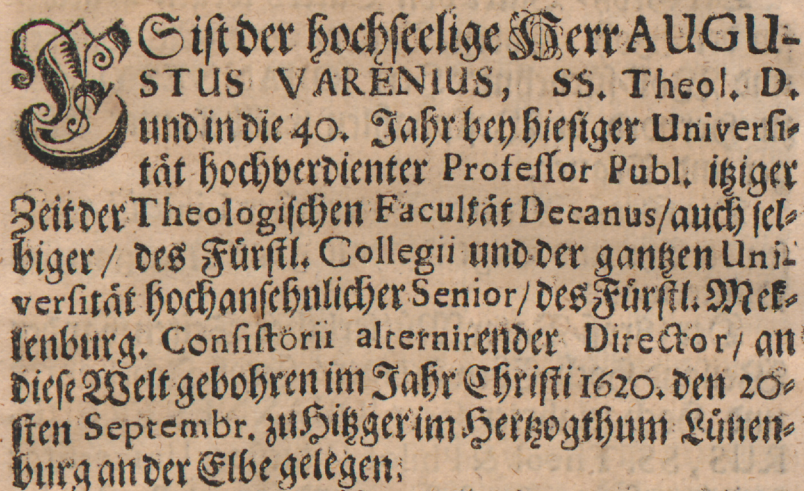 ES ist der hochseelige Herr AUGU-
STUS VARENIUS, SS. Theol. D.
und in die 40. Jahr bey hiesiger Universi-
tät hochverdienter Professor Publ. itziger
Zeit der Theologischen Facultät Decanus/ auch sel-
biger / des Fürstl. Collegii und der gantzen Uni-
versität hochansehnlicher Senior/ des Fürstl. Mek-
lenburg. Consistorii alternirender Director/ an
diese Welt gebohren im Jahr Christi 1620. den 20-
sten Septembr. zu Hitzger im Hertzogthum Lünen-
burg an der Elbe gelegen.